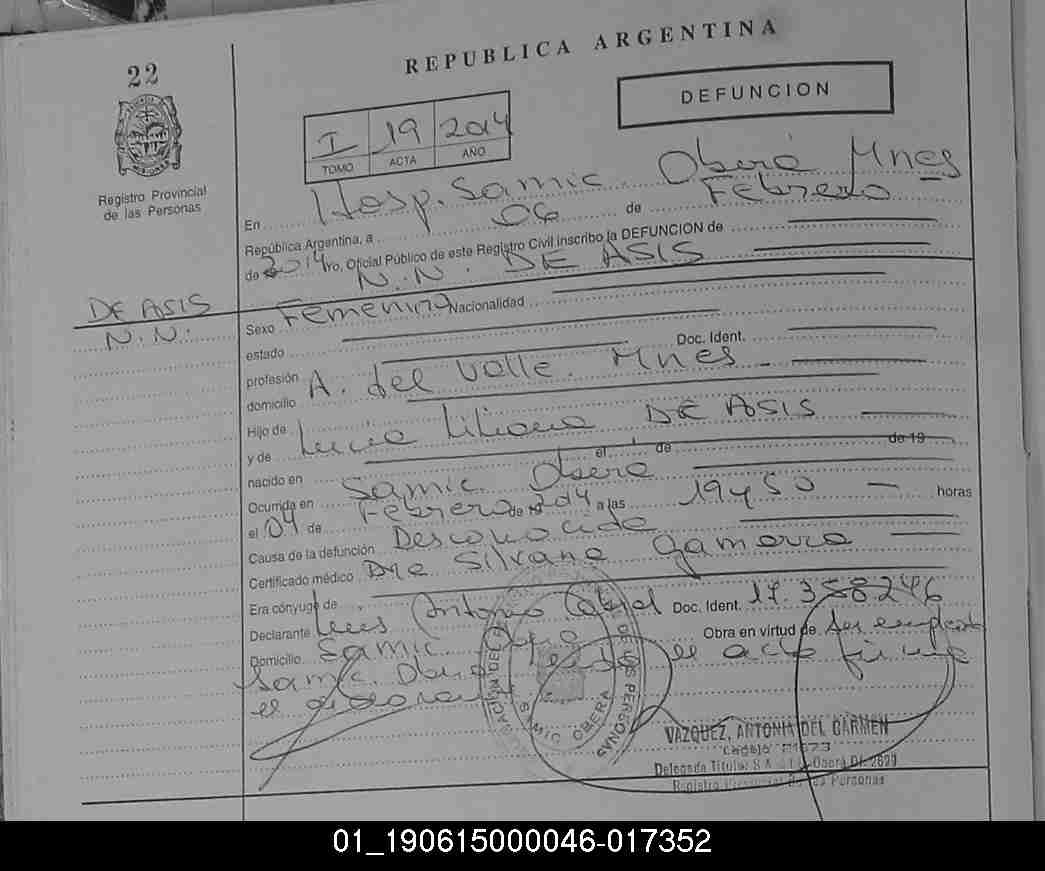 22
REPUBLICA ARGENTINA
DEFUNCION
I 19 2014
TOMO ACTA AÑO
Registro Provincial
de las Personas
En Hosp. Samic Oberá Mnes
República Argentina, a 06 de Febrero
de 2014 yo, Oficial Público de este Registro Civil inscribo la DEFUNCION de
N.N. DE ASIS
DE ASIS
N.N.
Sexo Femenino Nacionalidad
estado
profesión Doc. Ident.
domicilio A. del Valle. Mnes
Hijo de
y de Lucia Liliana DE ASIS
nacido en el de de 19
Ocurrida en Samic Obera
el 04 de Febrero de 2014 a las 19 y 50 horas
Causa de la defunción Desconocida
Certificado médico Dra Silvana
Era cónyuge de
Declarante Luis Antonio Cabral Doc. Ident. 17.358.246
Domicilio Samic Obera Obra en virtud de Ser empleado
Samic. Obera el acta firma
el declarante
SAMIC OBERA
DE LAS PERSONAS
VAZQUEZ, ANTONIA DEL CARMEN
Delegada Titular Oberá
Registro Provincial de las Personas
01_190615000046-017352